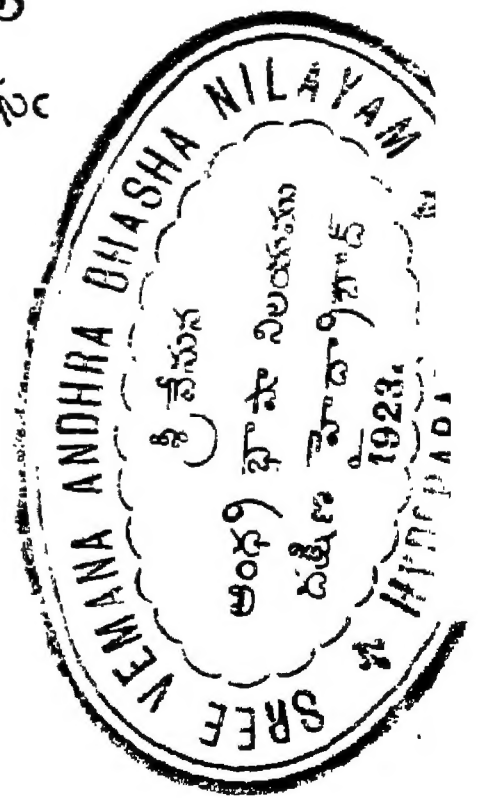 SREE VEMANA ANDHRA BHASHA NILAYAM
శ్రీ వేమన
ఆంధ్ర భాషా నిలయము
దక్షిణ హైదరాబాద్
1923.